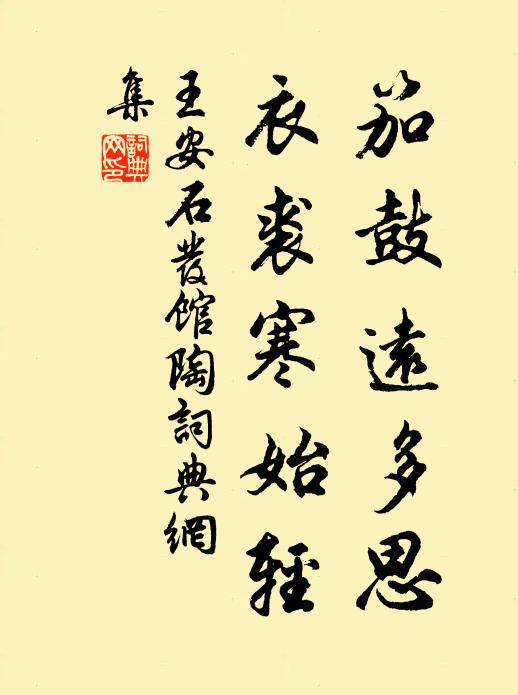 笳鼓遠多思
衣裘寒始輕
王安石發館陶詞典網
集
詞典
網印